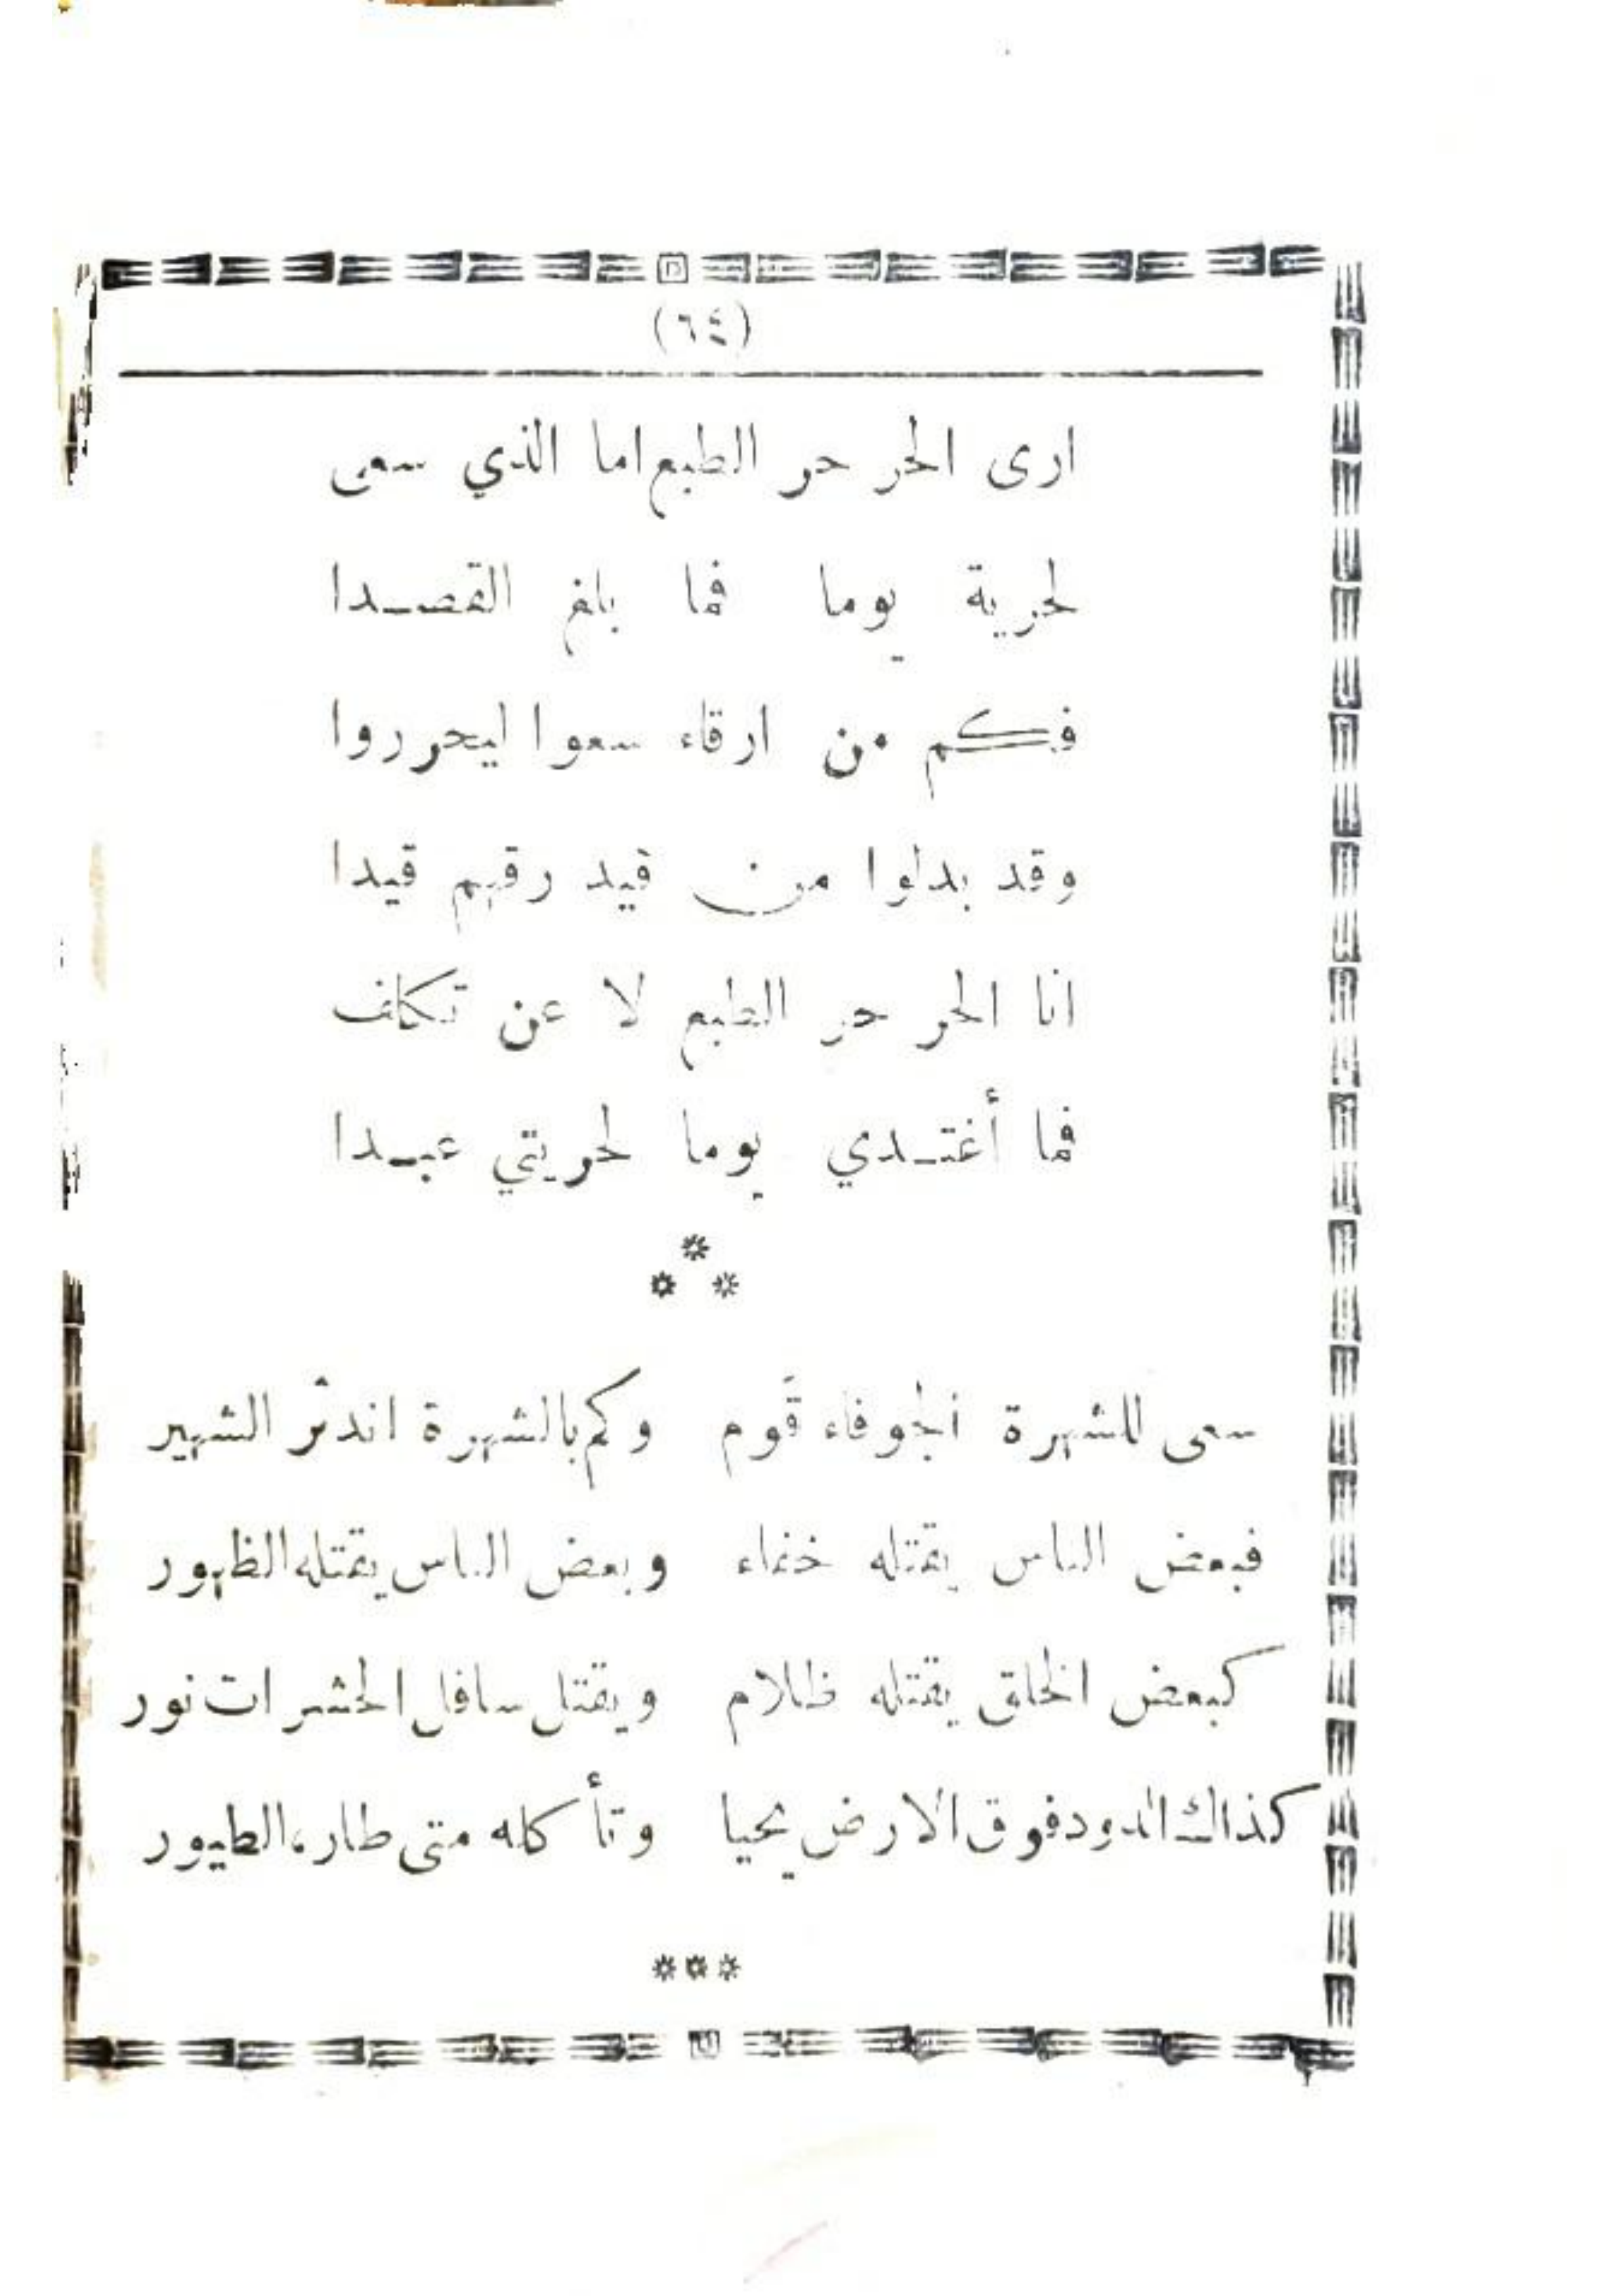 (٦٤)
ارى الحر حر الطبع اما الذي سعى
لحرية يوما فما بلغ القصدا
فكم من ارقاء سعوا ليحرروا
وقد بدلوا من قيد رقهم قيدا
انا الحر حر الطبع لا عن تكلف
فما أغتدي يوما لحريتي عبدا
سعى للشهرة الجوفاء قوم وكم بالشهرة اندثر الشهير
فبعض الناس يقتله خفاء وبعض الناس يقتله الظهور
كبعض الخلق يقتله ظلام ويقتل سافل الحشرات نور
كذاك الدود فوق الارض يحيا وتأكله متى طار، الطيور